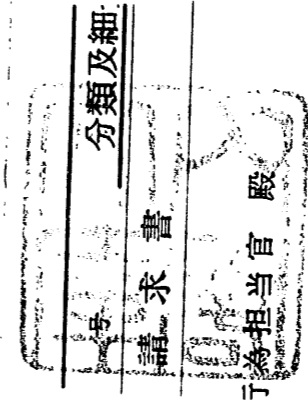 分類及細
号
請求書
行為担当官 殿